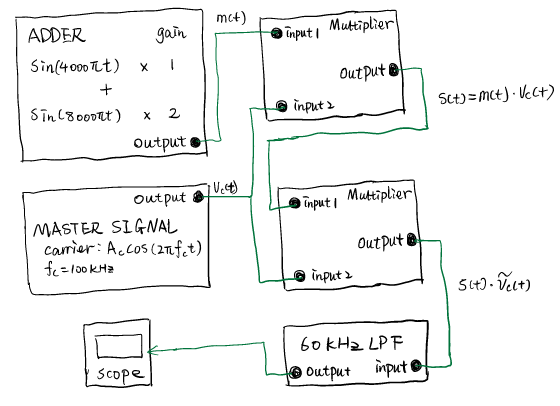 ADDER gain
Sin(4000πt) x 1
+
Sin(8000πt) x 2
output
m(t)
Multiplier
input1
output
input2
S(t)=m(t)·Vc(t)
output
Vc(t)
MASTER SIGNAL
carrier: Ac cos(2πfct)
fc=100kHz
Multiplier
input1
output
input2
S(t)·Ṽc(t)
60 KHz LPF
output input
scope